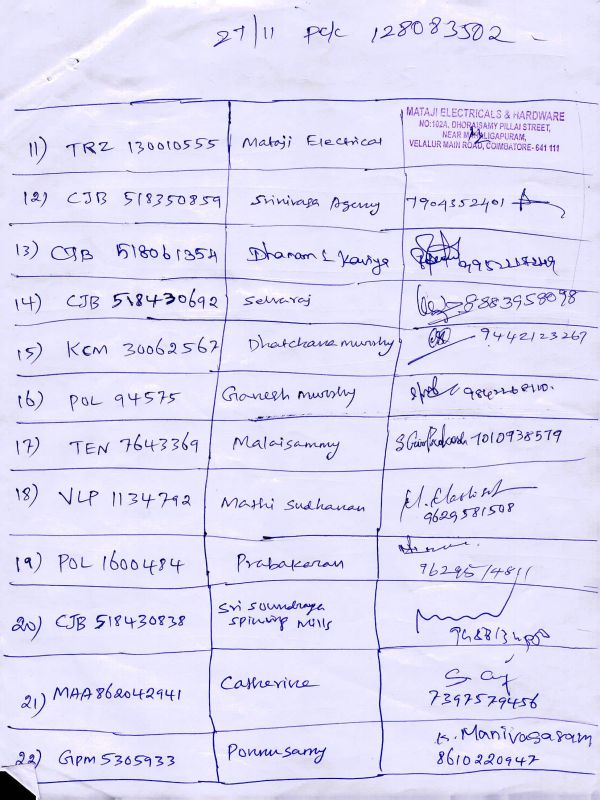 27/11 pck 128083502
11) TRZ 130010555 Mataji Electrical
MATAJI ELECTRICALS & HARDWARE
NO:102A, DHORAISAMY PILLAI STREET,
NEAR MAHALIGAPURAM,
VELALUR MAIN ROAD, COIMBATORE- 641 111
12) CJB 518350859 Srinivasa Agency 7904352401
13) CJB 518061354 Dhanam & Kaviya
14) CJB 518430692 Selvaraj 8883958098
15) KCM 30062567 Dhatchanamurthy 9442123267
16) POL 94575 Ganesh Murthy
17) TEN 7643369 Malaisammy 7010938579
18) VLP 1134792 Mathi Sudhanan
9629581508
19) POL 1600484 Prabakaran
9629514811
20) CJB 518430838 Sri Soundraya
Spinning Mills
21) MAA 862042941 Catherine
7397579456
22) GPM 5305933 Ponnusamy K. Manivasagam
8610220947